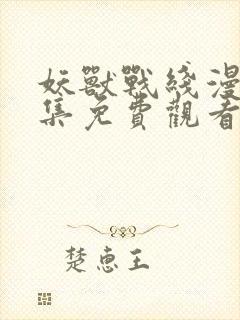 妖獸戰綫漫
集免費觀看
楚惠王